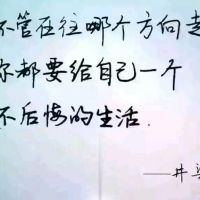 不管在往哪个方向走
你都要给自己一个
不后悔的生活.
——井